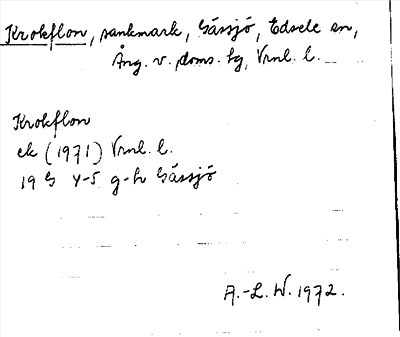 Krokflon, sankmark, Gåssjö, Edsele sn,
Ång. v. doms. tg, Vrnl. l.
Krokflon
ek (1971) Vrnl. l.
19 G 4-5 g-h Gåssjö
A.-L. W. 1972.